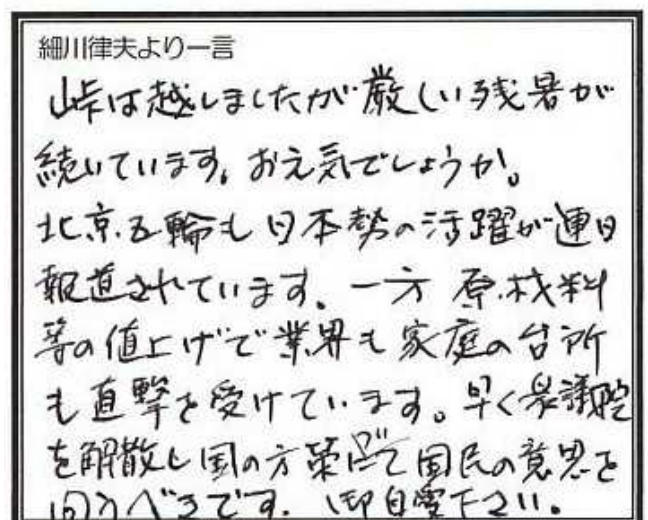 細川律夫より一言
峠は越しましたが厳しい残暑が
続いています。お元気でしょうか。
北京五輪も日本勢の活躍が連日
報道されています。一方 原材料
等の値上げで業界も家庭の台所
も直撃を受けています。早く衆議院
を解散し国の方策にて国民の意思を
伺うべきです。御自愛下さい。